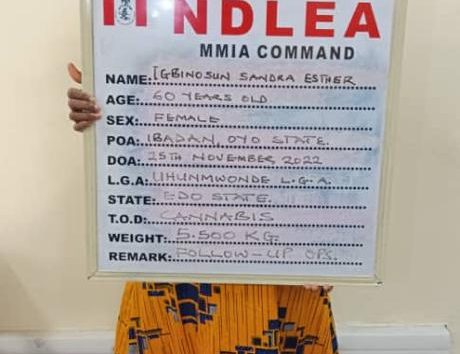 NDLEA
MMIA COMMAND
NAME: IGBINOSUN SANDRA ESTHER
AGE: 60 YEARS OLD
SEX: FEMALE
POA: IBADAN, OYO STATE.
DOA: 25TH NOVEMBER 2022
L.G.A: UHUNMWONDE L.G.A.
STATE: EDO STATE.
T.O.D: CANNABIS
WEIGHT: 5.500 KG.
REMARK: FOLLOW-UP OPS.